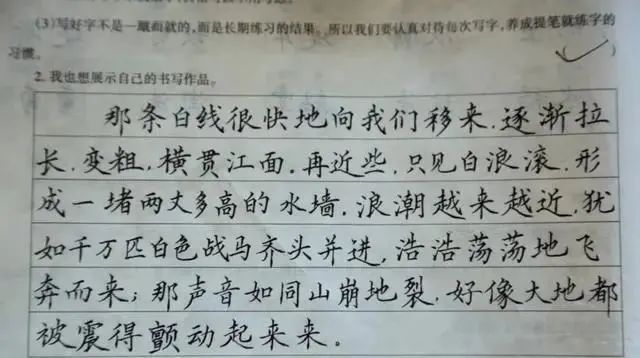 (3)写好字不是一蹴而就的,而是长期练习的结果。所以我们要认真对待每次写字,养成提笔就练字的
习惯。 (✓)
2. 我也想展示自己的书写作品。
那条白线很快地向我们移来,逐渐拉
长,变粗,横贯江面。再近些,只见白浪滚,形
成一堵两丈多高的水墙。浪潮越来越近,犹
如千万匹白色战马齐头并进,浩浩荡荡地飞
奔而来;那声音如同山崩地裂,好像大地都
被震得颤动起来来。